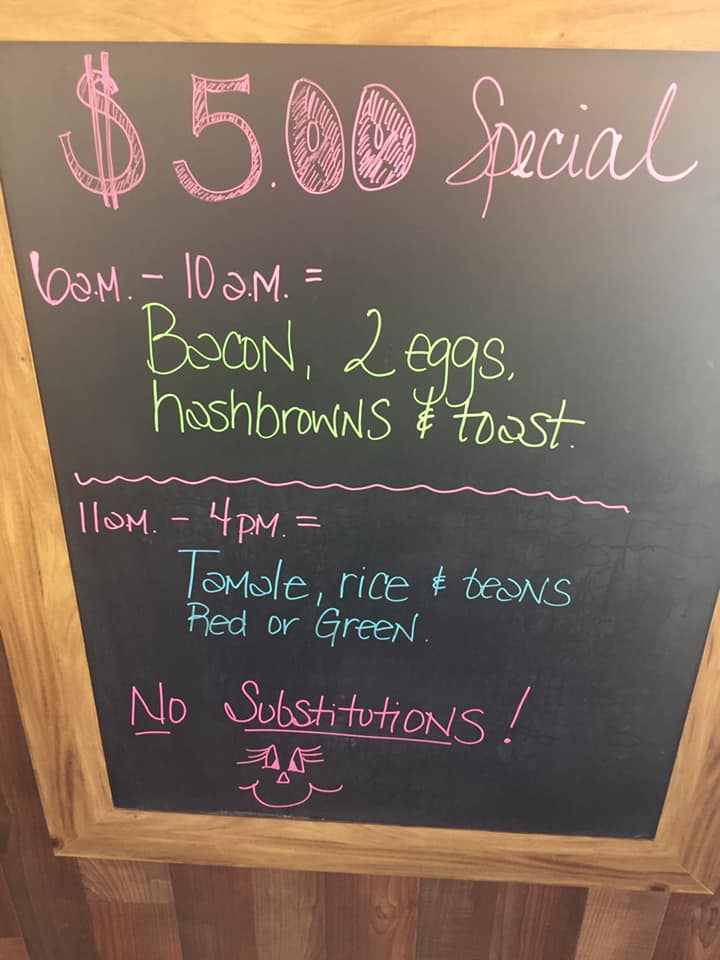 $5.00 Special
6a.m. - 10a.m. =
Bacon, 2 eggs,
hashbrowns & toast.
11am. - 4pm. =
Tamale, rice & beans
Red or Green.
No Substitutions!